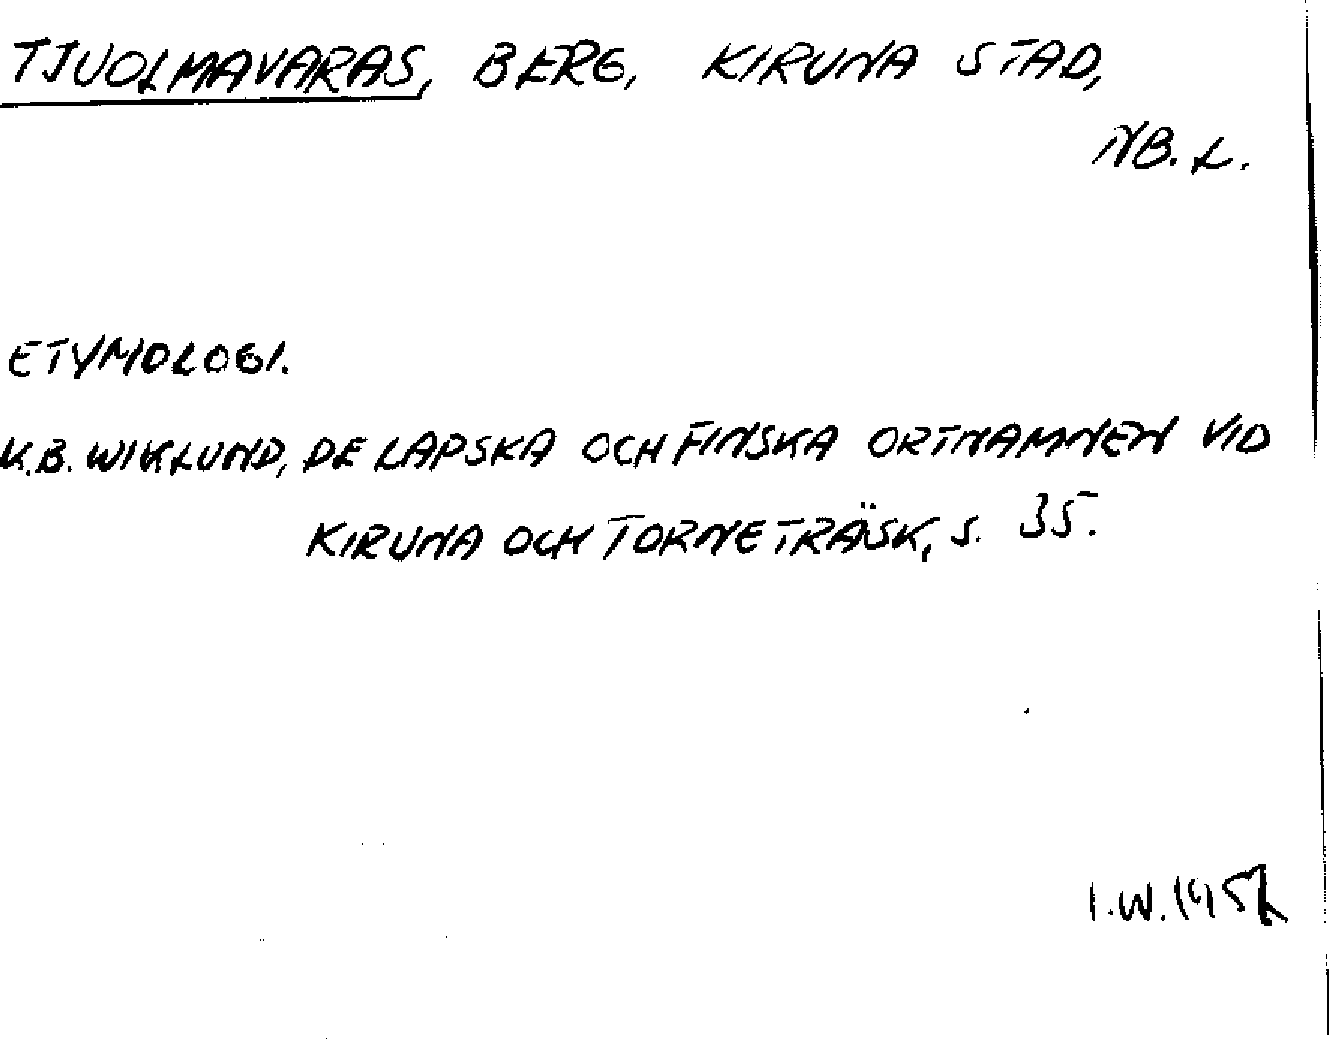 TJUOLMAVARAS, BERG, KIRUNA STAD,
NB. L.
ETYMOLOGI.
K.B. WIKLUND, DE LAPSKA OCH FINSKA ORTNAMNEN VID
KIRUNA OCH TORNETRÄSK, S. 35.
I.W.